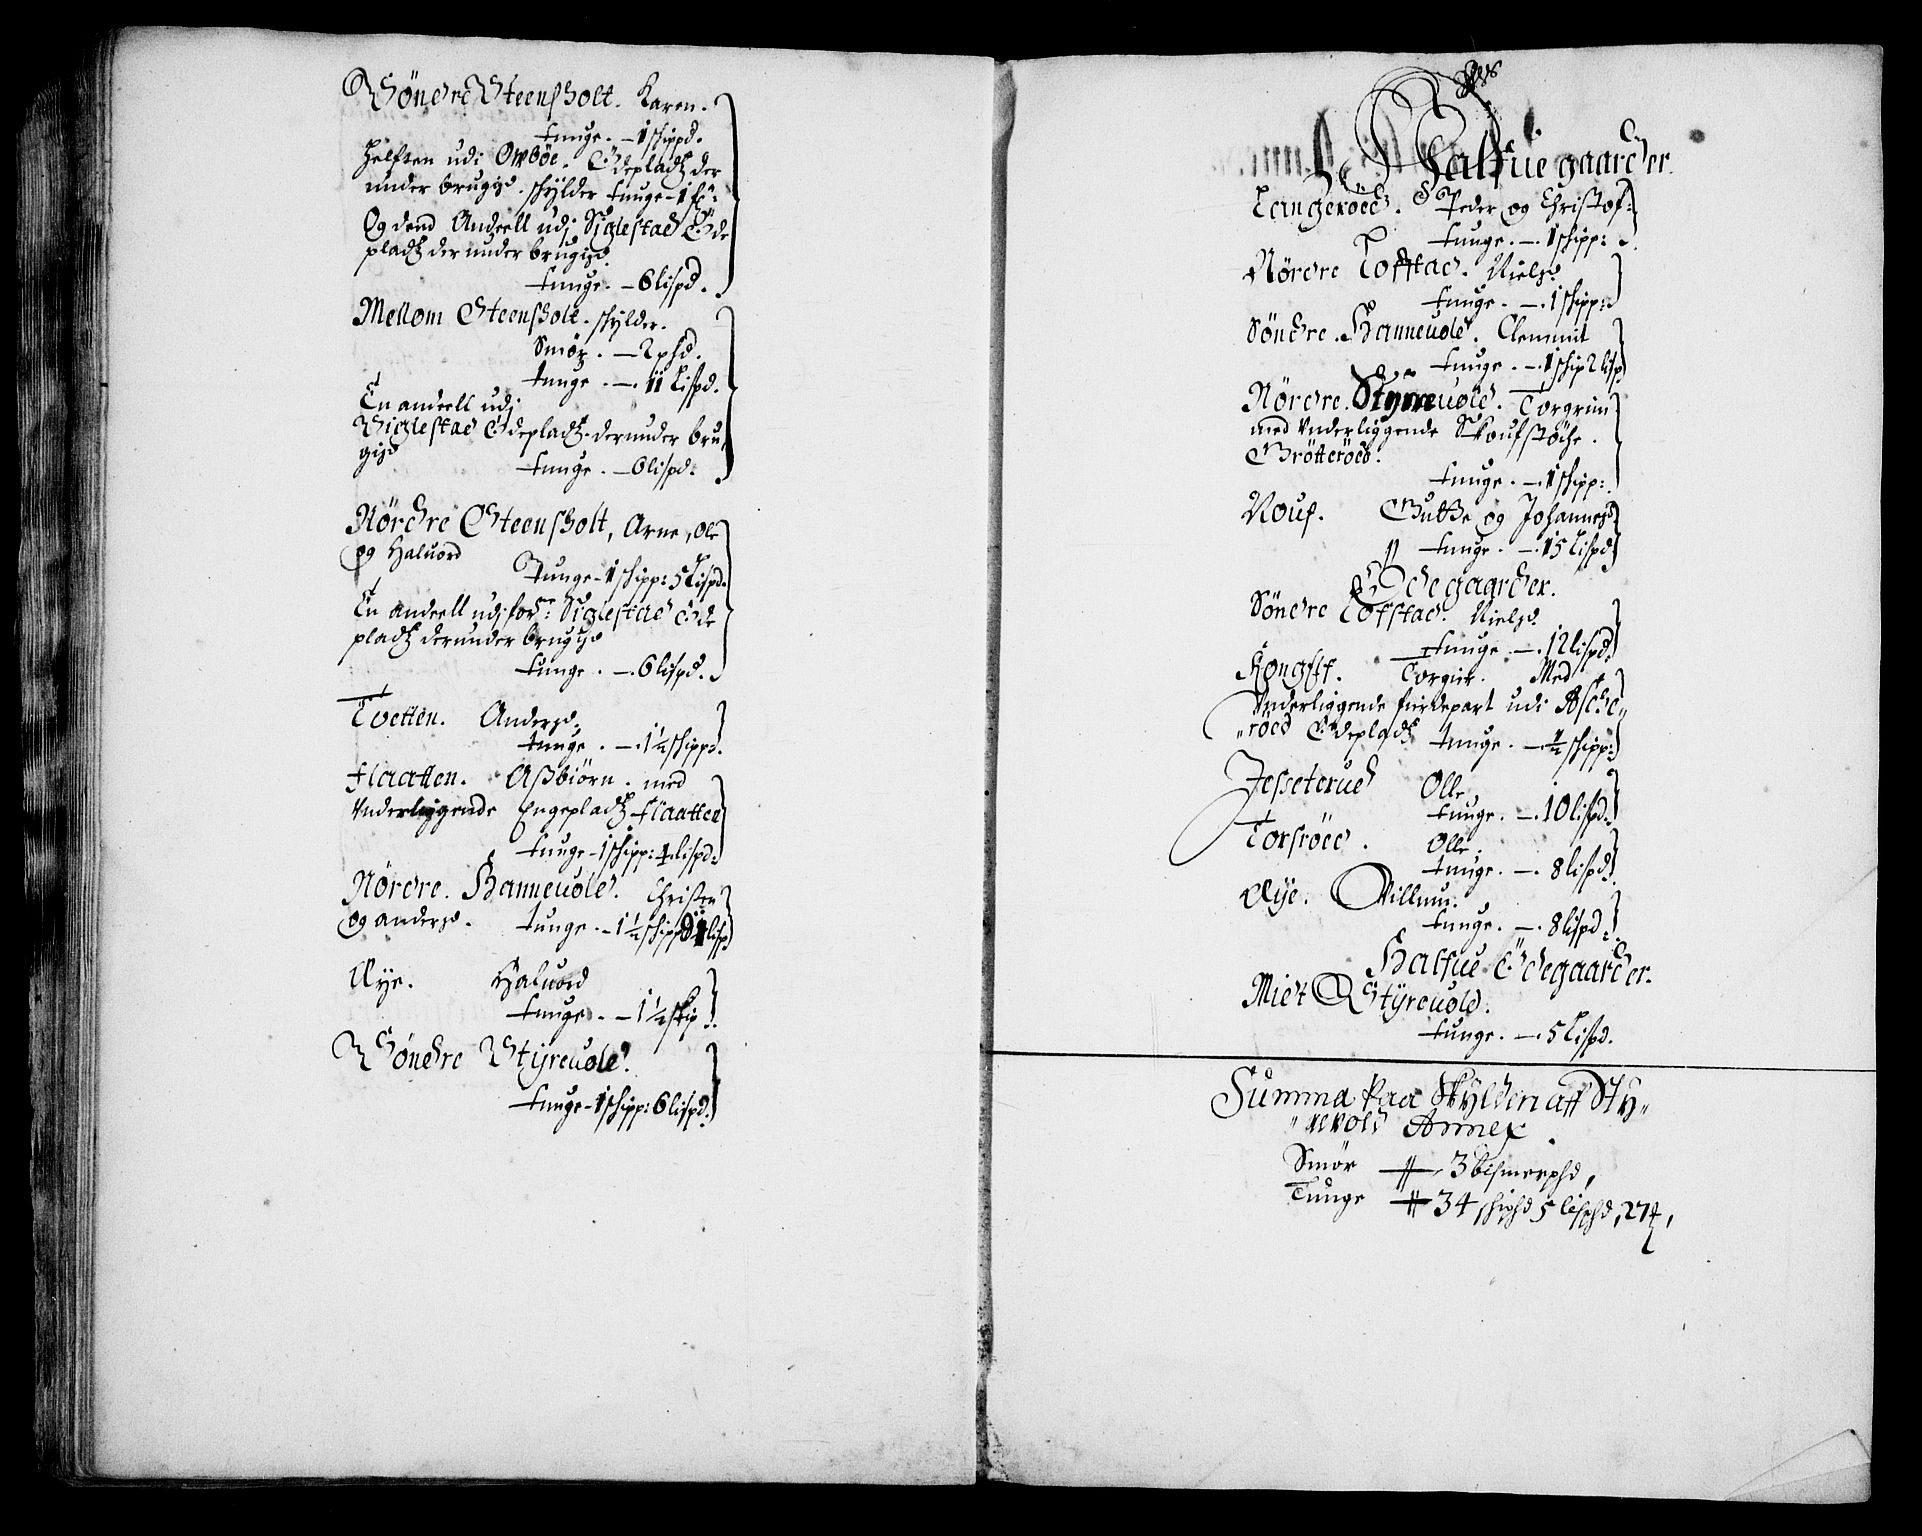 Söndre Steensholt. Karen.
tunge. — 1 schippd.
Helften udi Owböe. Ödepladtz der
under brugisd. schylder tunge — 1 se:
Og dend Andeell udj Siglestad Öde
pladtz der under brugisd.
tunge. — 6 lispd.
Mellom Steensholt. schylder.
Smör. — 2 phd.
tunge. — 11 Lispd.
En andeell udj
Siglestad Ödepladtz. derunder bru,,
gisd
tunge. — 6 lispd.
Nördre Steensholt, Arne, Ole
og Haluord
Tunge — 1 schipp: 5 Lispd.
En andeell udj for:ne Siglestad Öde
pladtz derunder brugisd
tunge. — 6 lispd.
Tvetten. Andersd.
tunge. — 1½ schippd.
Flaatten. Assbiörn. med
Vnderliggende Engepladtz Flaatten
tunge — 1 schipp: 4 lispd.
Nördre. Hanneuold. Christen
og andersd. tunge. — 1½ schippd 1 lispd
Aye. Haluord
tunge. — 1½ skip.
Söndre Styreuold.
tunge — 1 schipp: 6 lispd.
Halfue gaarder.
Langeröed. Peder og Christof:
tunge. — 1 schipp:
Nördre Tofftad. Nielsd.
tunge. — 1 schipp:
Söndre. Hanneuold. Clemmit
tunge. — 1 schip 2 lisp
Nördre. Styreuold. Torgrim
med Vnderliggende Skoufstöche.
Brötteröed.
tunge. — 1 schipp:
Rouf. Gutthe og Johannesd
tunge. — 15 Lispd
Ödegaarder.
Söndre Tofftad. Nielsd.
tunge. — 12 lispd.
Kongstf. Torgier. Med
Vnderliggende fierdepart udi Asche,,
,,röed Ödepladtz tunge. — ½ schipp:
Jesseterued Olle
tunge. — 10 lispd.
Torsröed. Olle.
tunge. — 8 lispd.
Aye. Villum.
tunge. — 8 lispd.
Halfue Ödegaarder.
Mier Styreuold.
tunge. — 5 Lispd.
Summa Paa Skylden aff Sty,,
,,revold Annex.
Smör — 3 bismerphd,
Tunge — 34 schiphd 5 lisphd, 27